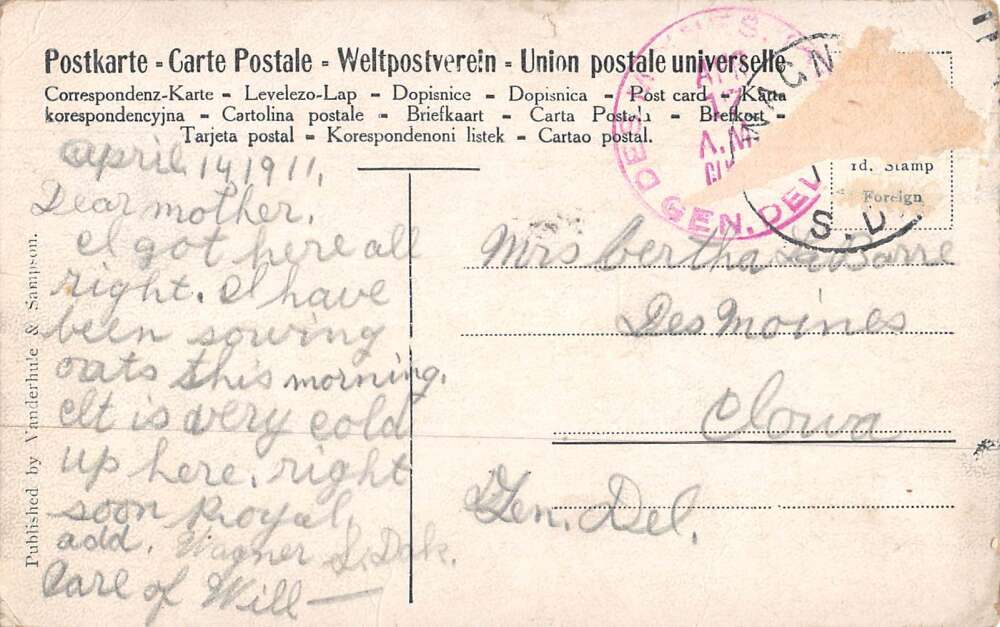 Postkarte - Carte Postale - Weltpostverein - Union postale universelle
Correspondenz-Karte - Levelezo-Lap - Dopisnice - Dopisnica - Post card - Karta
korespondencyjna - Cartolina postale - Briefkaart - Carta Postala - Brefkort -
Tarjeta postal - Korespondenoni listek - Cartao postal.
DES MOINES,
APR
17
A.M.
GEN. DEL.
S. D.
1d. Stamp
Foreign
april 14, 1911,
Dear mother,
I got here all
right. I have
been sowing
oats this morning,
It is very cold
up here, right
soon Royal,
add, Wagner S. Dak.
Care of Will—
Mrs bertha LaBarre
Des Moines
Iowa
Gen. Del.
Published by Vanderhule & Sampson.